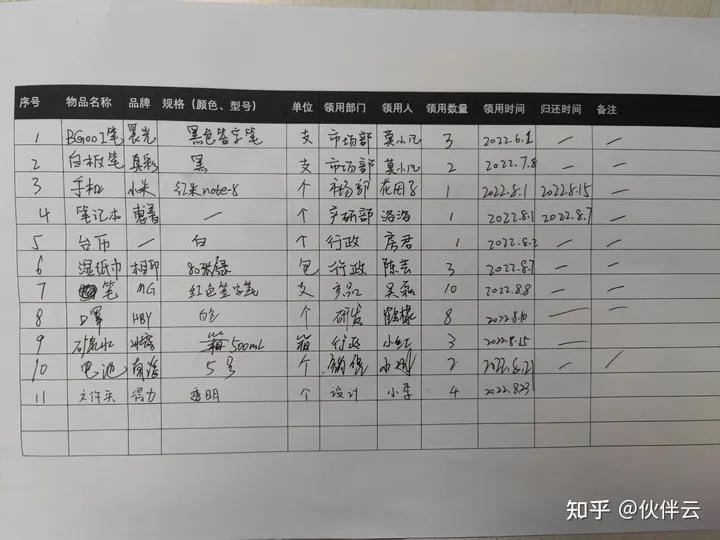 序号 物品名称 品牌 规格（颜色、型号） 单位 领用部门 领用人 领用数量 领用时间 归还时间 备注
1 BG001笔 晨光 黑色签字笔 支 市场部 莫小凡 3 2022.6.1 — —
2 白板笔 真彩 黑 支 市场部 莫小凡 2 2022.7.8 — —
3 手机 小米 红米note-8 个 市场部 花田子 1 2022.8.1 2022.8.15 —
4 笔记本 惠普 — 个 产研部 洛洛 1 2022.8.1 2022.8.7 —
5 台币 — 白 个 行政 房君 1 2022.8.2 — —
6 湿纸巾 相印 80张 包 行政 陈芸 3 2022.8.7 — —
7 笔 MG 红色签字笔 支 产品 吴磊 10 2022.8.8 — —
8 口罩 HBY 白色 个 研发 8 2022.8.10 — —
9 矿泉水 冰露 500mL 箱 行政 小红 3 2022.8.15 —
10 电池 南孚 5号 个 销售 小明 2 2022.8.21 — —
11 文件夹 得力 透明 个 设计 小李 4 2022.8.23
知乎 @伙伴云